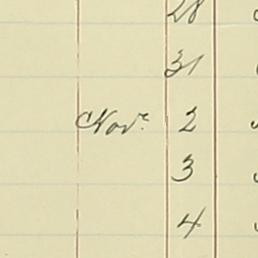 28
31
Novr. 2
3
4